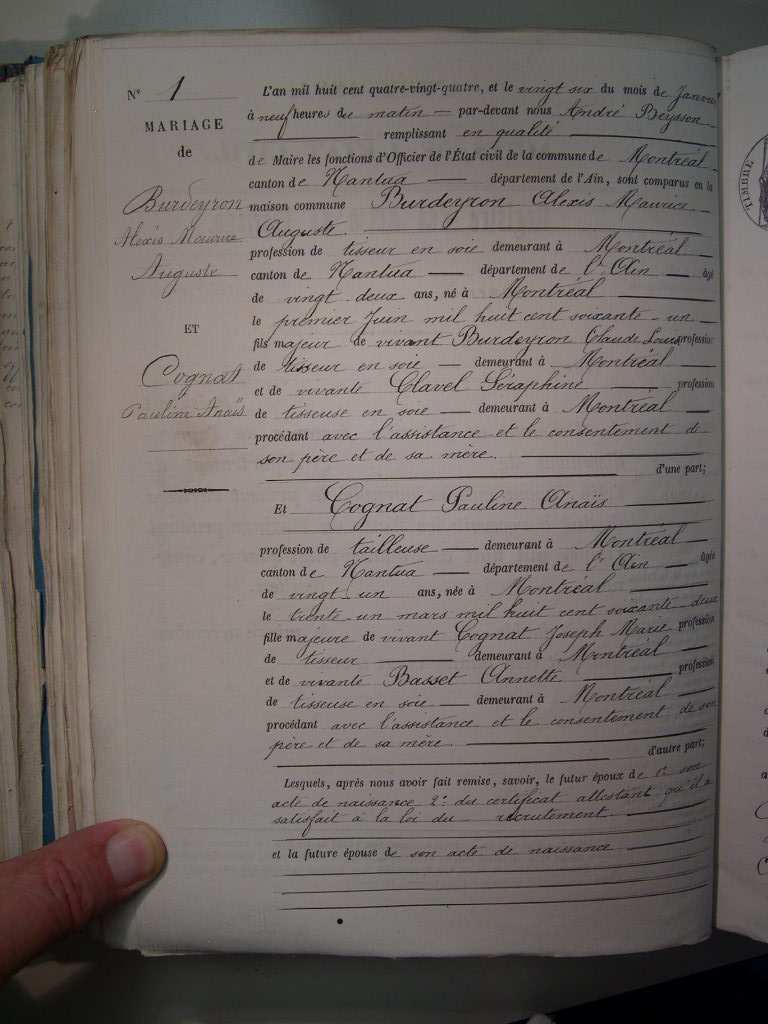 N° 1
MARIAGE
de
Burdeyron
Alexis Maurice
Auguste
ET
Cognat
Pauline Anaïs
L'an mil huit cent quatre-vingt-quatre, et le vingt six du mois de Janvier
à neuf heures du matin — par-devant nous André Beysson
remplissant en qualité
de Maire les fonctions d'Officier de l'État civil de la commune de Montréal
canton de Nantua — département de l'Ain, sont comparus en la
maison commune Burdeyron Alexis Maurice
Auguste.
profession de tisseur en soie demeurant à Montréal
canton de Nantua — département de l'Ain — âgé
de vingt-deux ans, né à Montréal
le premier Juin mil huit cent soixante-un
fils majeur de vivant Burdeyron Claude Louis profession
de tisseur en soie — demeurant à Montréal
et de vivante Clavel Séraphine — profession
de tisseuse en soie — demeurant à Montréal
procédant avec l'assistance et le consentement de
son père et de sa mère.
d'une part;
Et Cognat Pauline Anaïs
profession de tailleuse — demeurant à Montréal
canton de Nantua — département de l'Ain — âgée
de vingt-un ans, née à Montréal
le trente-un mars mil huit cent soixante-deux
fille majeure de vivant Cognat Joseph Marie profession
de tisseur — demeurant à Montréal
et de vivante Basset Annette — profession
de tisseuse en soie — demeurant à Montréal
procédant avec l'assistance et le consentement de son
père et de sa mère.
d'autre part;
Lesquels, après nous avoir fait remise, savoir, le futur époux de 1° son
acte de naissance 2° du certificat attestant qu'il a
satisfait à la loi du recrutement.
et la future épouse de son acte de naissance
TIMBRE